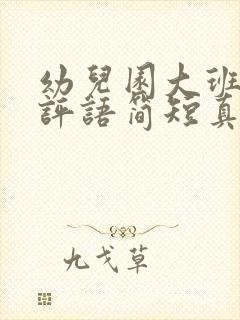 幼兒園大班
評語簡短真
九戈草